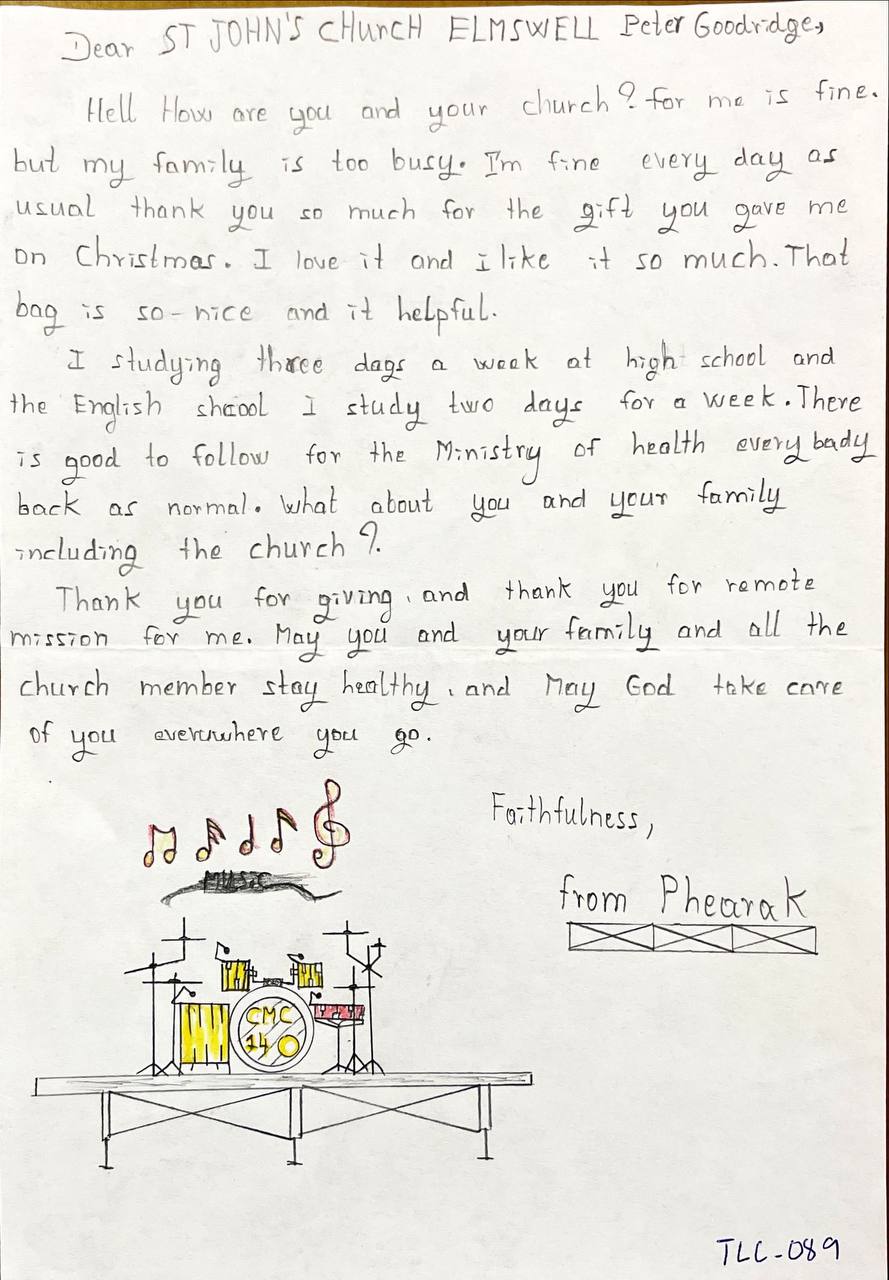 Dear ST JOHN'S CHURCH ELMSWELL Peter Goodridge,
Hell How are you and your church? for me is fine.
but my family is too busy. I'm fine every day as
usual thank you so much for the gift you gave me
on Christmas. I love it and i like it so much. That
bag is so-nice and it helpful.
I studying three dags a week at high school and
the English shcool I study two days for a week. There
is good to follow for the Ministry of health every bady
back as normal. What about you and your family
including the church?
Thank you for giving, and thank you for remote
mission for me. May you and your family and all the
church member stay healthy, and May God take care
of you everwhere you go.
Faithfulness,
MUSIC
from Phearak
CMC
14
TLC-089